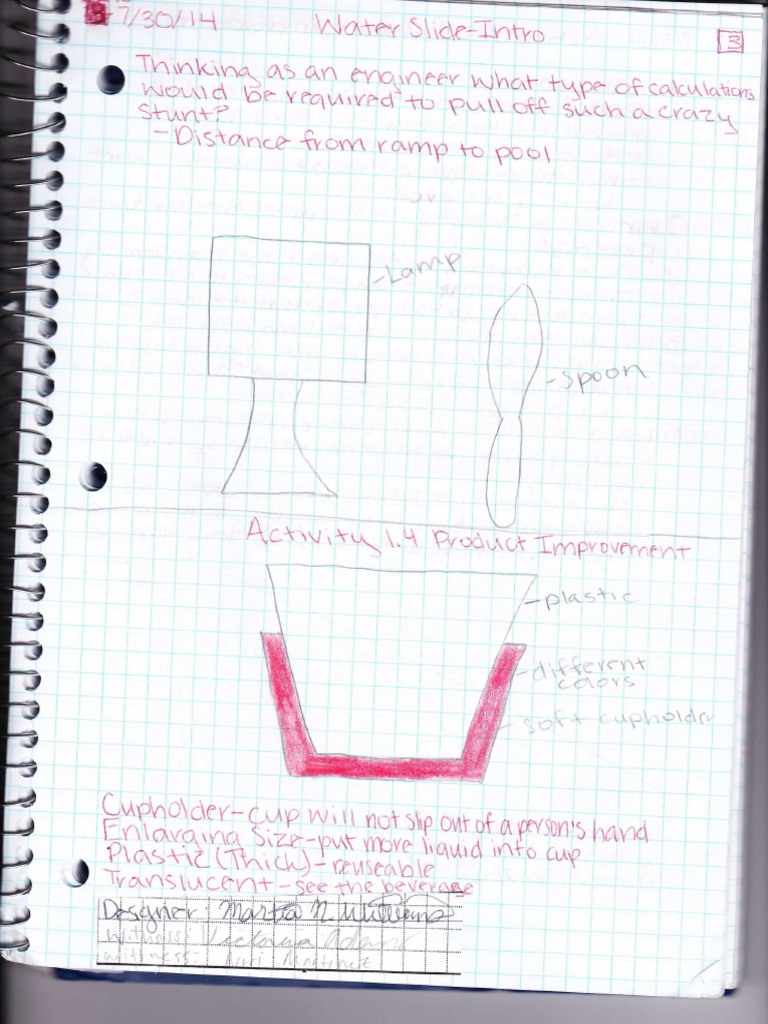 7/30/14
Water Slide-Intro
3
Thinking as an engineer what type of calculations
would be required to pull off such a crazy
stunt?
-Distance from ramp to pool
-Lamp
-spoon
Activity 1.4 Product Improvement
-plastic
-different
colors
-soft cupholder
Cupholder-cup will not slip out of a person's hand
Enlarging Size-put more liquid into cup
Plastic (Thick)-reuseable
Translucent-see the beverage
Designer: Marta N. Williams
Witness: Victoria
Wittness: Martinez